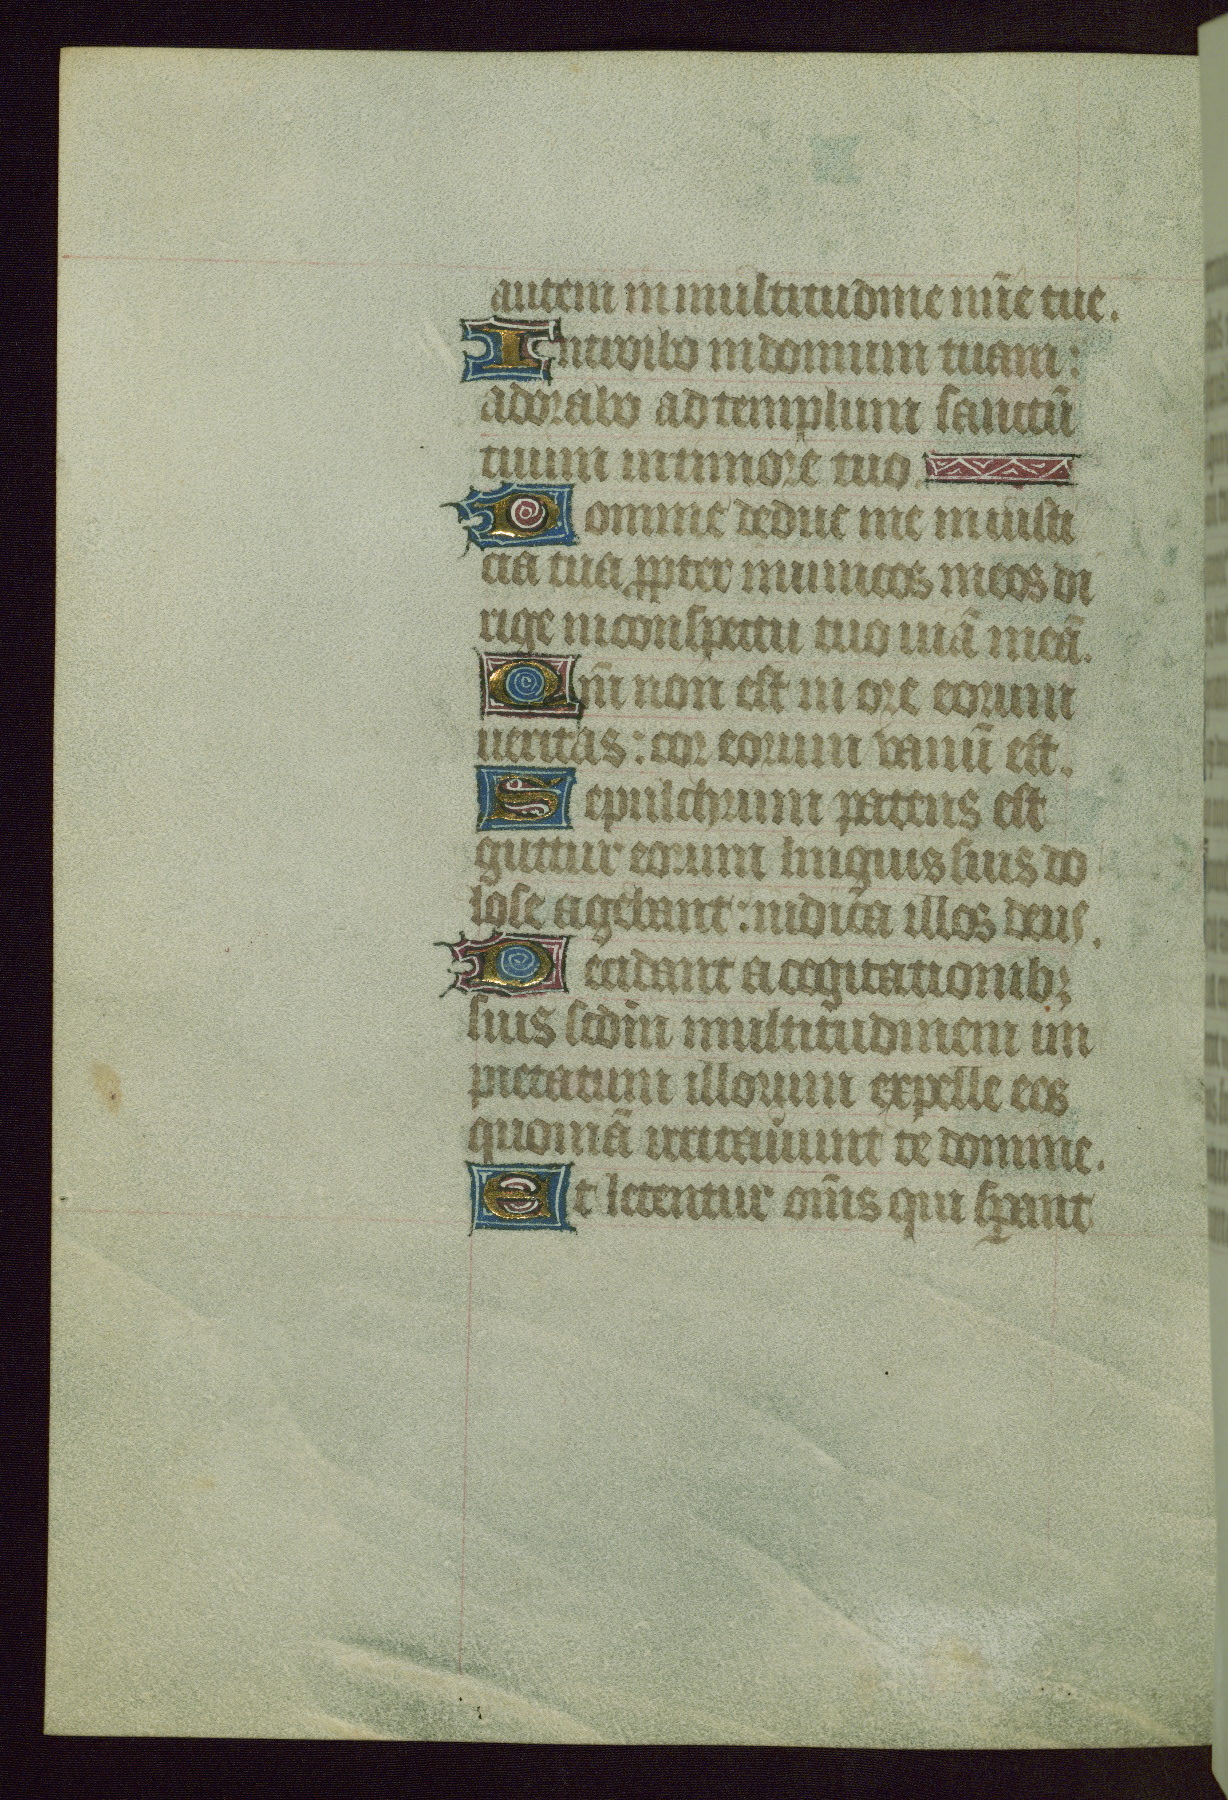 autem in multitudine mīe tue.
Introibo in domum tuam:
adorabo ad templum sanctū
tuum in timore tuo.
Domine deduc me in iusti
cia tua ꝓpter inimicos meos di
rige in conspectu tuo uiā meā.
Qm̄ non est in ore eorum
ueritas: cor eorum vanū est.
Sepulchrum patens est
guttur eorum linguis suis do
lose agebant: iudica illos deus.
Decidant a cogitationibꝫ
suis scdm̄ multitudinem im
pietatum illorum expelle eos
quoniā irritauūnt te domine.
Et letentur om̄is qui sꝑant